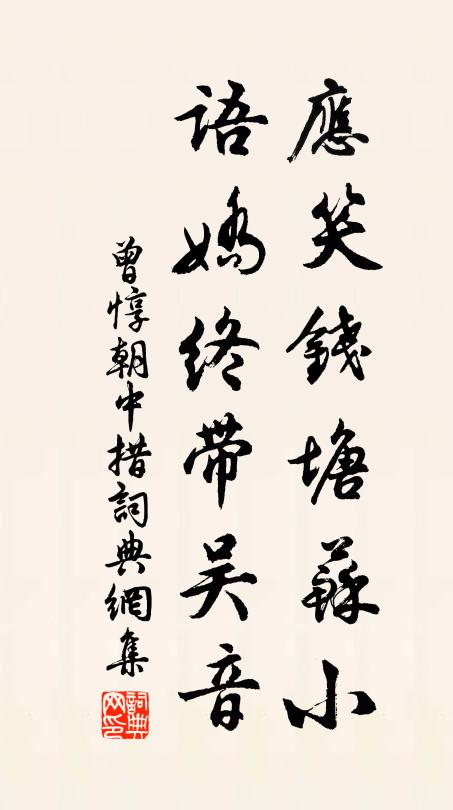 應笑錢塘蘇小
語嬌終帶吳音
曾惇朝中措詞典網集
詞典网印